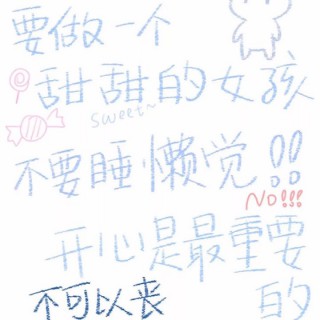 要做一个
甜甜的女孩
sweet~
不要睡懒觉!!
NO!!!
开心是最重要
的
不可以丧